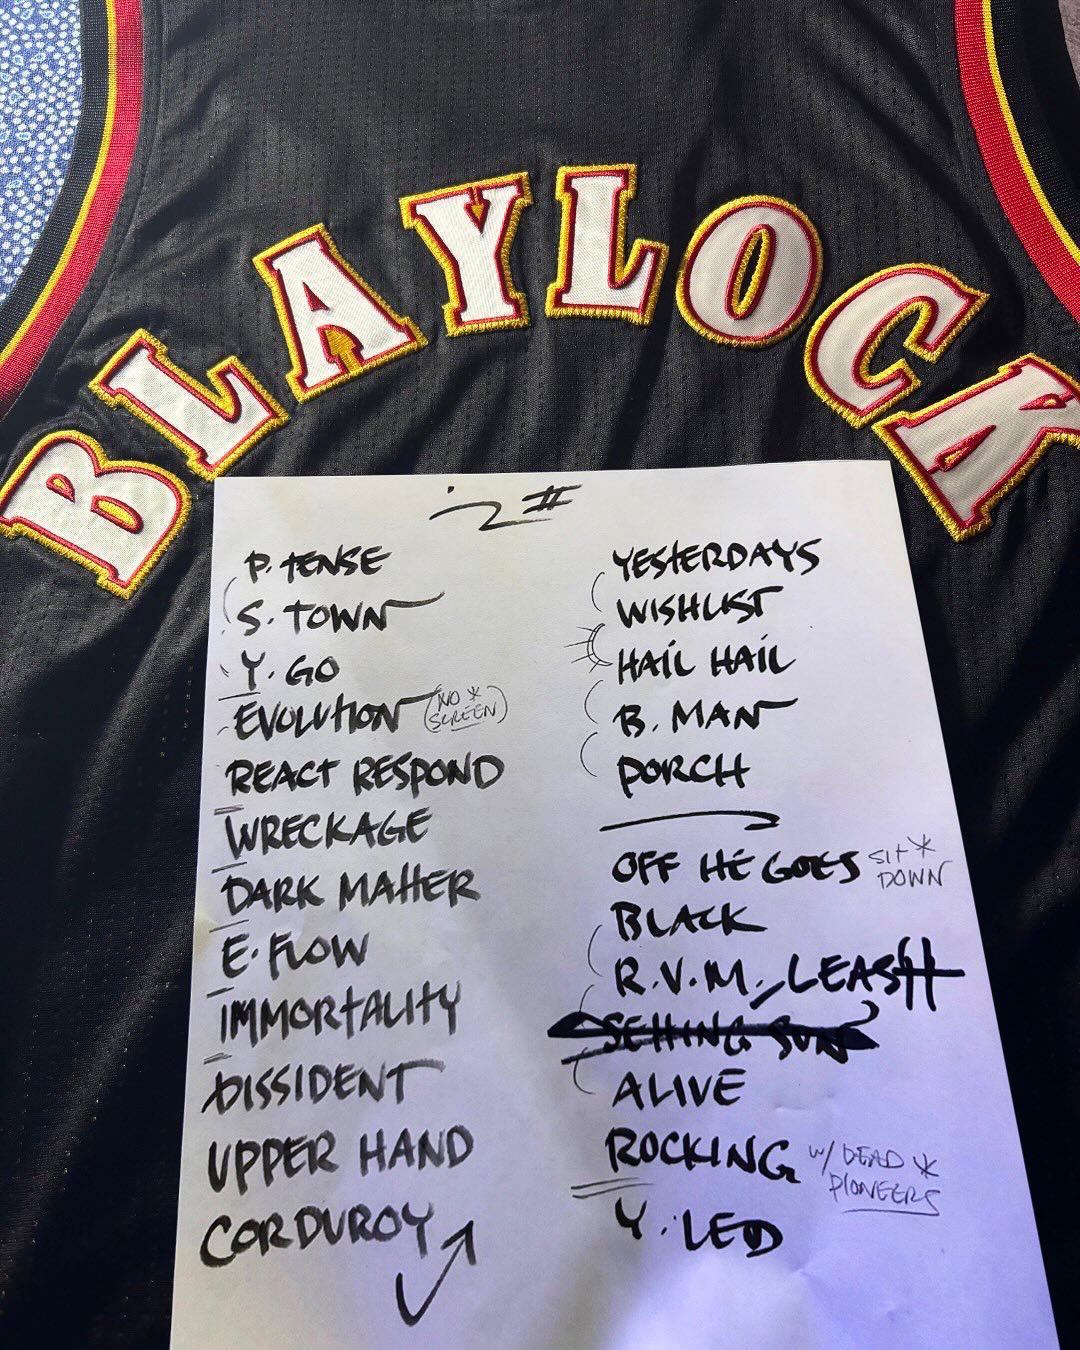 BLAYLOCK
P. TENSE
S. TOWN
Y. GO
EVOLUTION (NO * SCREEN)
REACT RESPOND
WRECKAGE
DARK MATTER
E. FLOW
IMMORTALITY
DISSIDENT
UPPER HAND
CORDUROY
YESTERDAYS
WISHLIST
HAIL HAIL
B. MAN
PORCH
OFF HE GOES SIT * DOWN
BLACK
R.V.M. / LEASH
SETTING SUN
ALIVE
ROCKING W/ DEAD * PIONEERS
Y. LED